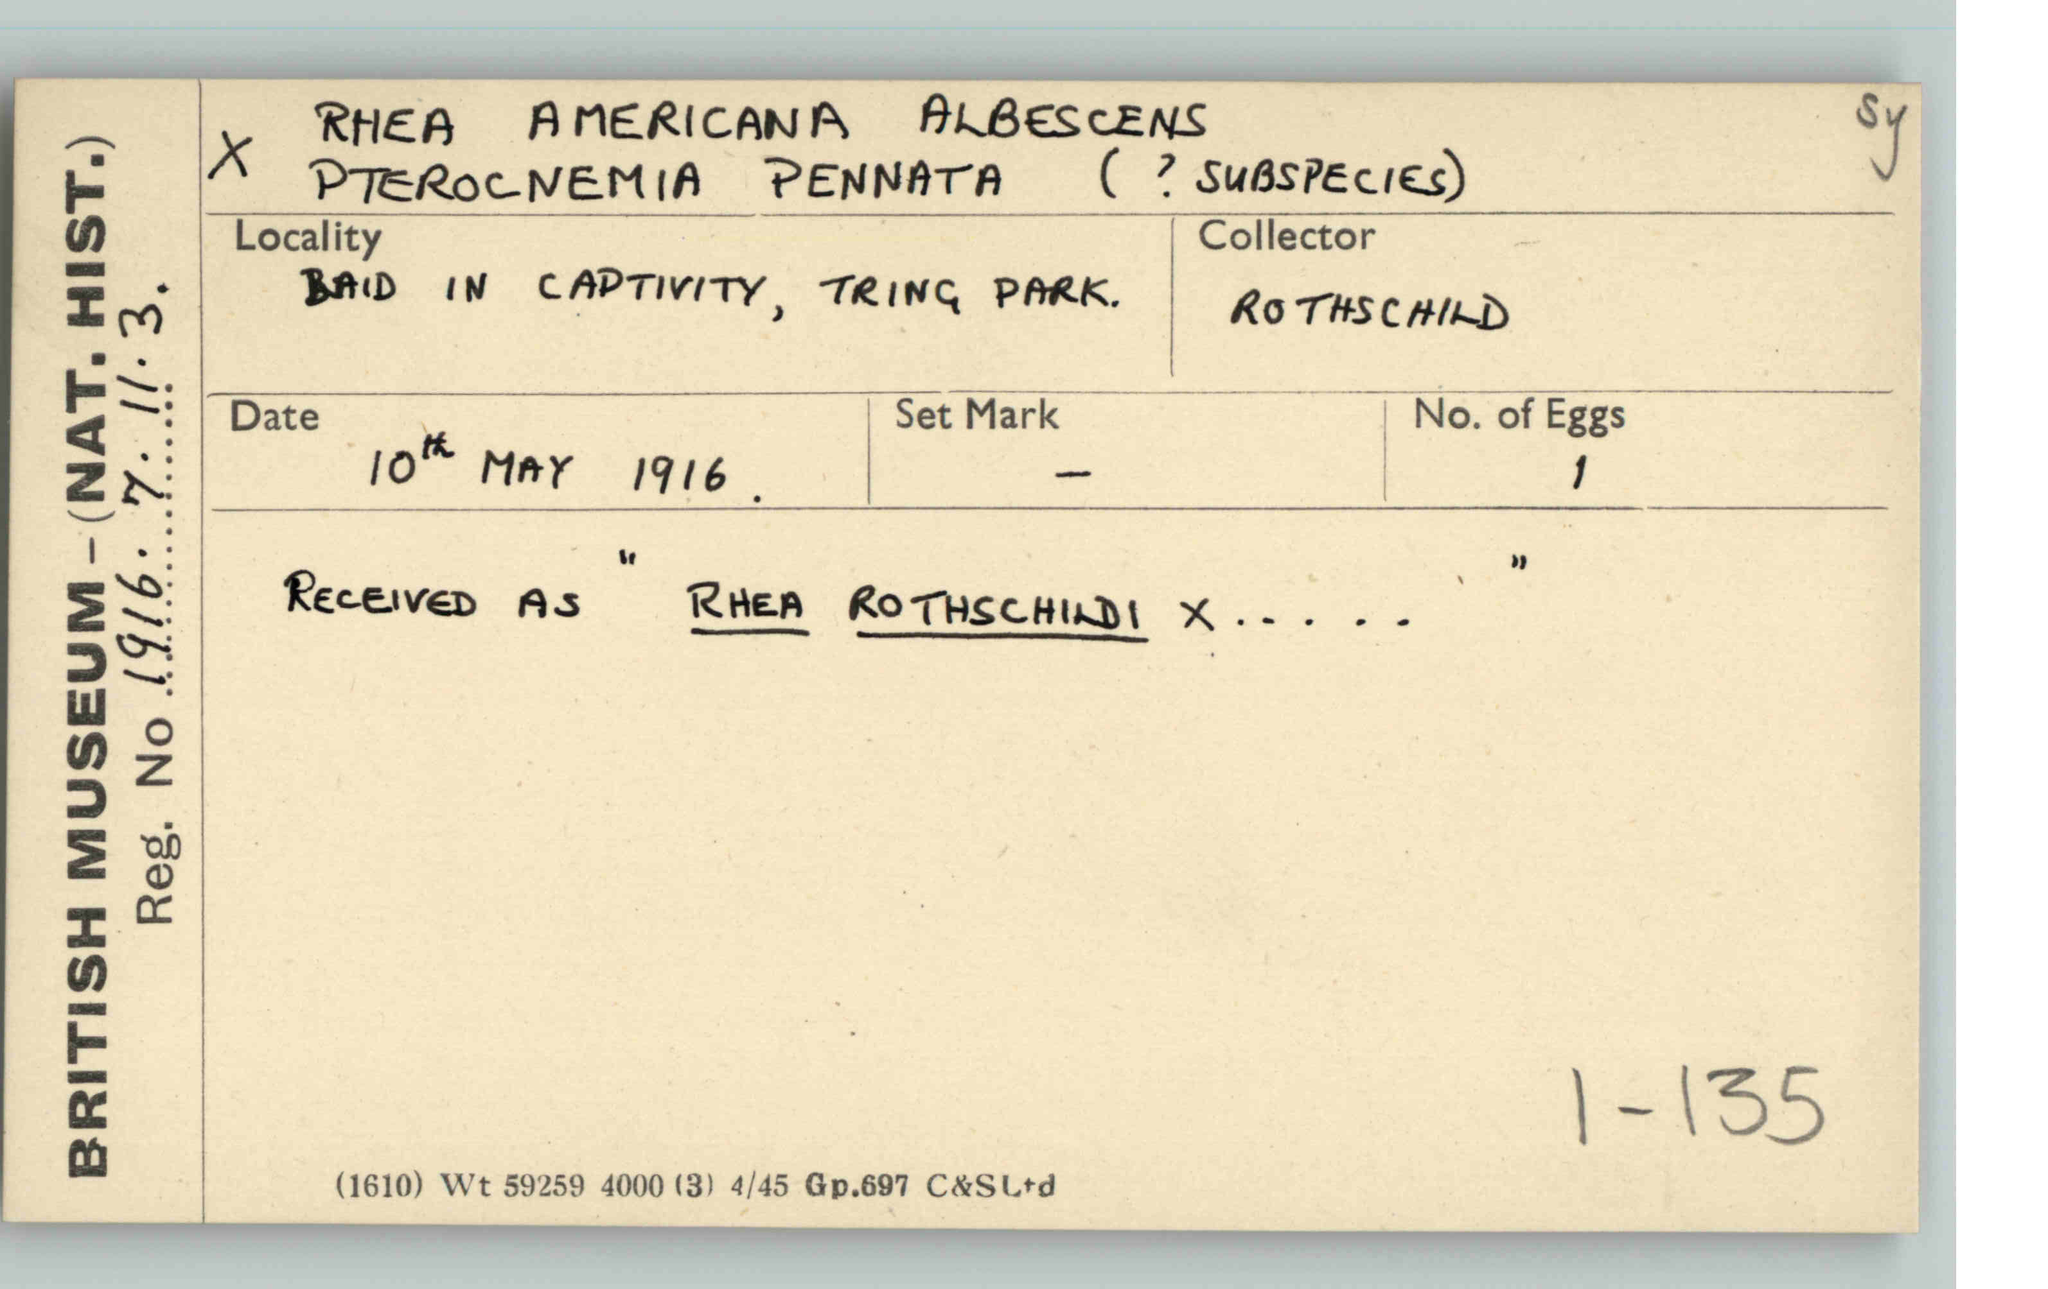 BRITISH MUSEUM – (NAT. HIST.)
Reg. No 1916.7.11.3.
RHEA AMERICANA ALBESCENS
X PTEROCNEMIA PENNATA (? SUBSPECIES)
Sy
Locality
LAID IN CAPTIVITY, TRING PARK.
Collector
ROTHSCHILD
Date
10th MAY 1916.
Set Mark
—
No. of Eggs
1
RECEIVED AS "RHEA ROTHSCHILDI X . . . . . "
1-135
(1610) Wt 59259 4000 (3) 4/45 Gp.697 C&S Ltd